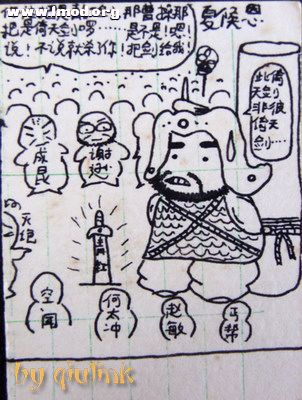 www.lmod.org
那曹操那
夏侯恩
把是倚天剑啰……是不是！吧！
说！不说就杀你！把剑给我！
此倚天剑非彼倚天剑…
成昆
谢逊
灭绝
空闻
何太冲
赵敏
丐帮
by qiulink